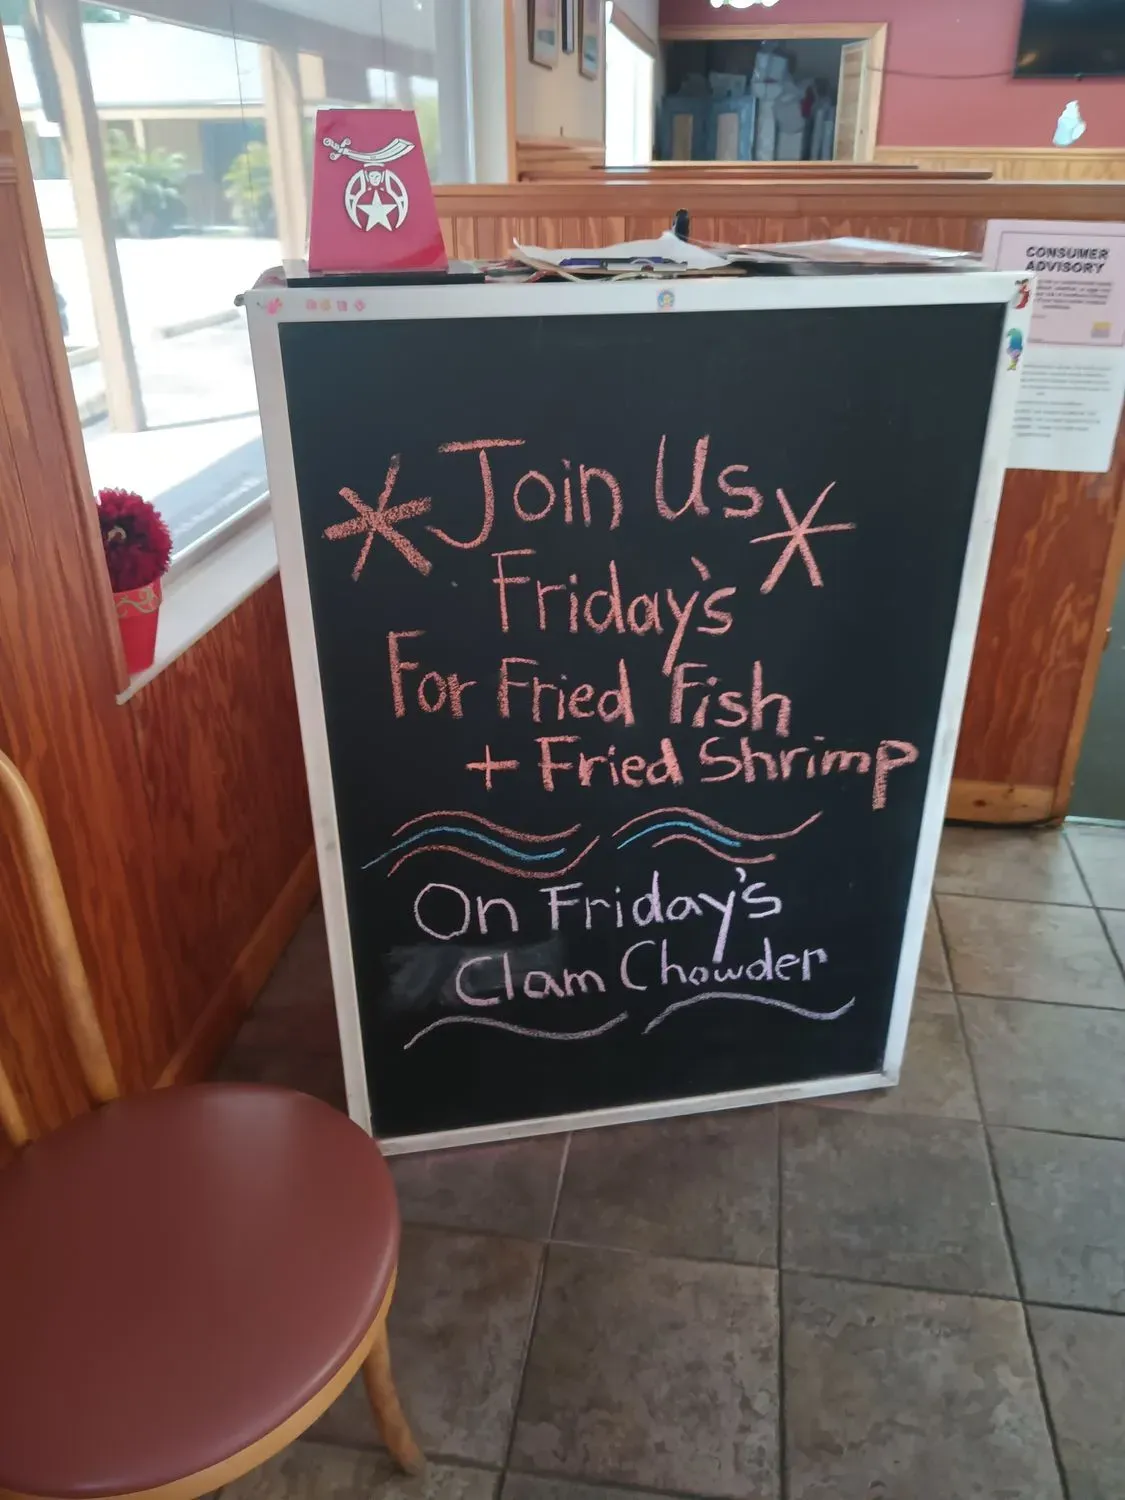 CONSUMER
ADVISORY
* Join Us *
Friday's
For Fried Fish
+ Fried Shrimp
On Friday's
Clam Chowder